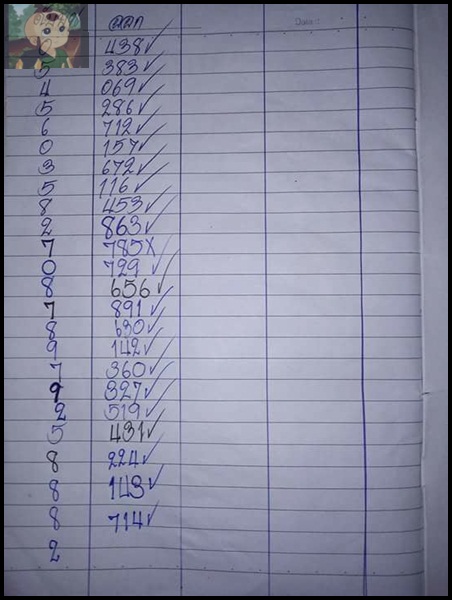 ออก Date :
438 ✓
5 383 ✓
4 069 ✓
5 286 ✓
6 712 ✓
0 157 ✓
3 672 ✓
5 116 ✓
8 453 ✓
2 863 ✓
7 785 X
0 729 ✓
8 656 ✓
7 891 ✓
8 630 ✓
9 142 ✓
7 360 ✓
9 327 ✓
2 519 ✓
5 431 ✓
8 224 ✓
8 143 ✓
8 714 ✓
2